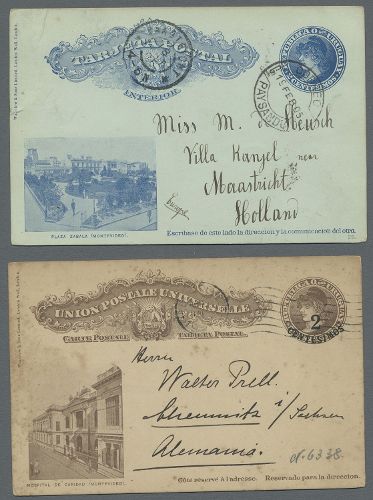 TARJETA POSTAL
INTERIOR.
PAYSANDU
Miss M. d
Villa Kanjel near
Maastricht
Holland
Europe
PLAZA ZABALA (MONTEVIDEO).
Escríbase de este lado la direccion y la comunicacion del otro.
UNION POSTALE UNIVERSELLE
CARTE POSTALE TARJETA POSTAL
2
CENTESIMOS
Herrn
Walter Prell.
Chemnitz i/Sachsen
Alemania.
d.6338.
HOSPITAL DE CARIDAD (MONTEVIDEO)
Côté réservé à l'adresse. Reservado para la direccion.